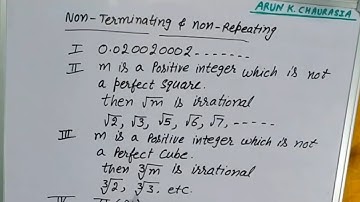 ARUN K. CHAURASIA
Non-Terminating & non-Repeating
I 0.020020002-------
II m is a Positive integer which is not
a perfect Square.
then √m is irrational
√2, √3, √5, √6, √7, -----
III m is a Positive integer which is not
a Perfect Cube.
then ∛m is irrational
∛2, ∛3. etc.
IV